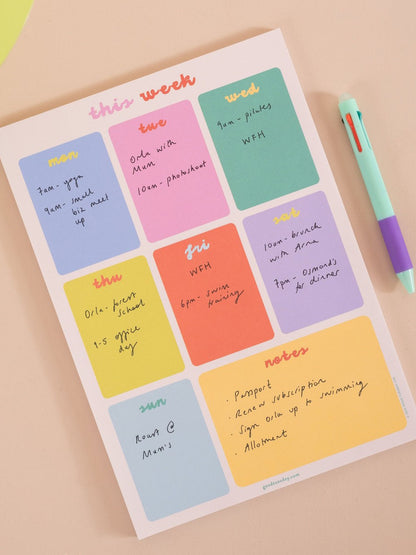 this week
mon
7am - yoga
9am - small
biz meet
up
tue
Orla with
Mum
10am - photoshoot
wed
9am - pilates
WFH
thu
Orla - forest
school
9-5 office
day
fri
WFH
6pm - swim
training
sat
10am - brunch
with Anna
7pm - Osmond's
for dinner
sun
Roast @
Mum's
notes
· Passport
· Renew subscription
· Sign Orla up to swimming
· Allotment